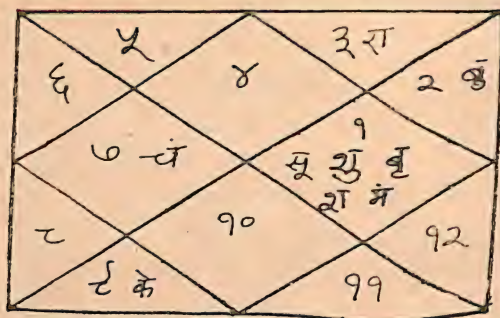 ५
३ रा
६
४
२ बु
७ चं
१
सू शु बृ
श मं
८
१०
१२
९ के
११